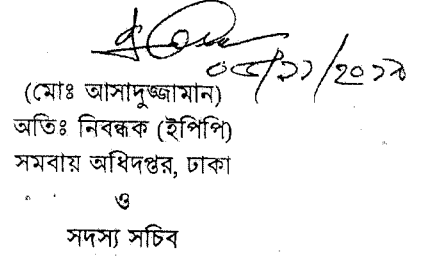 ০৫/১১/২০১৯
(মোঃ আসাদুজ্জামান)
অতিঃ নিবন্ধক (ইপিপি)
সমবায় অধিদপ্তর, ঢাকা
ও
সদস্য সচিব